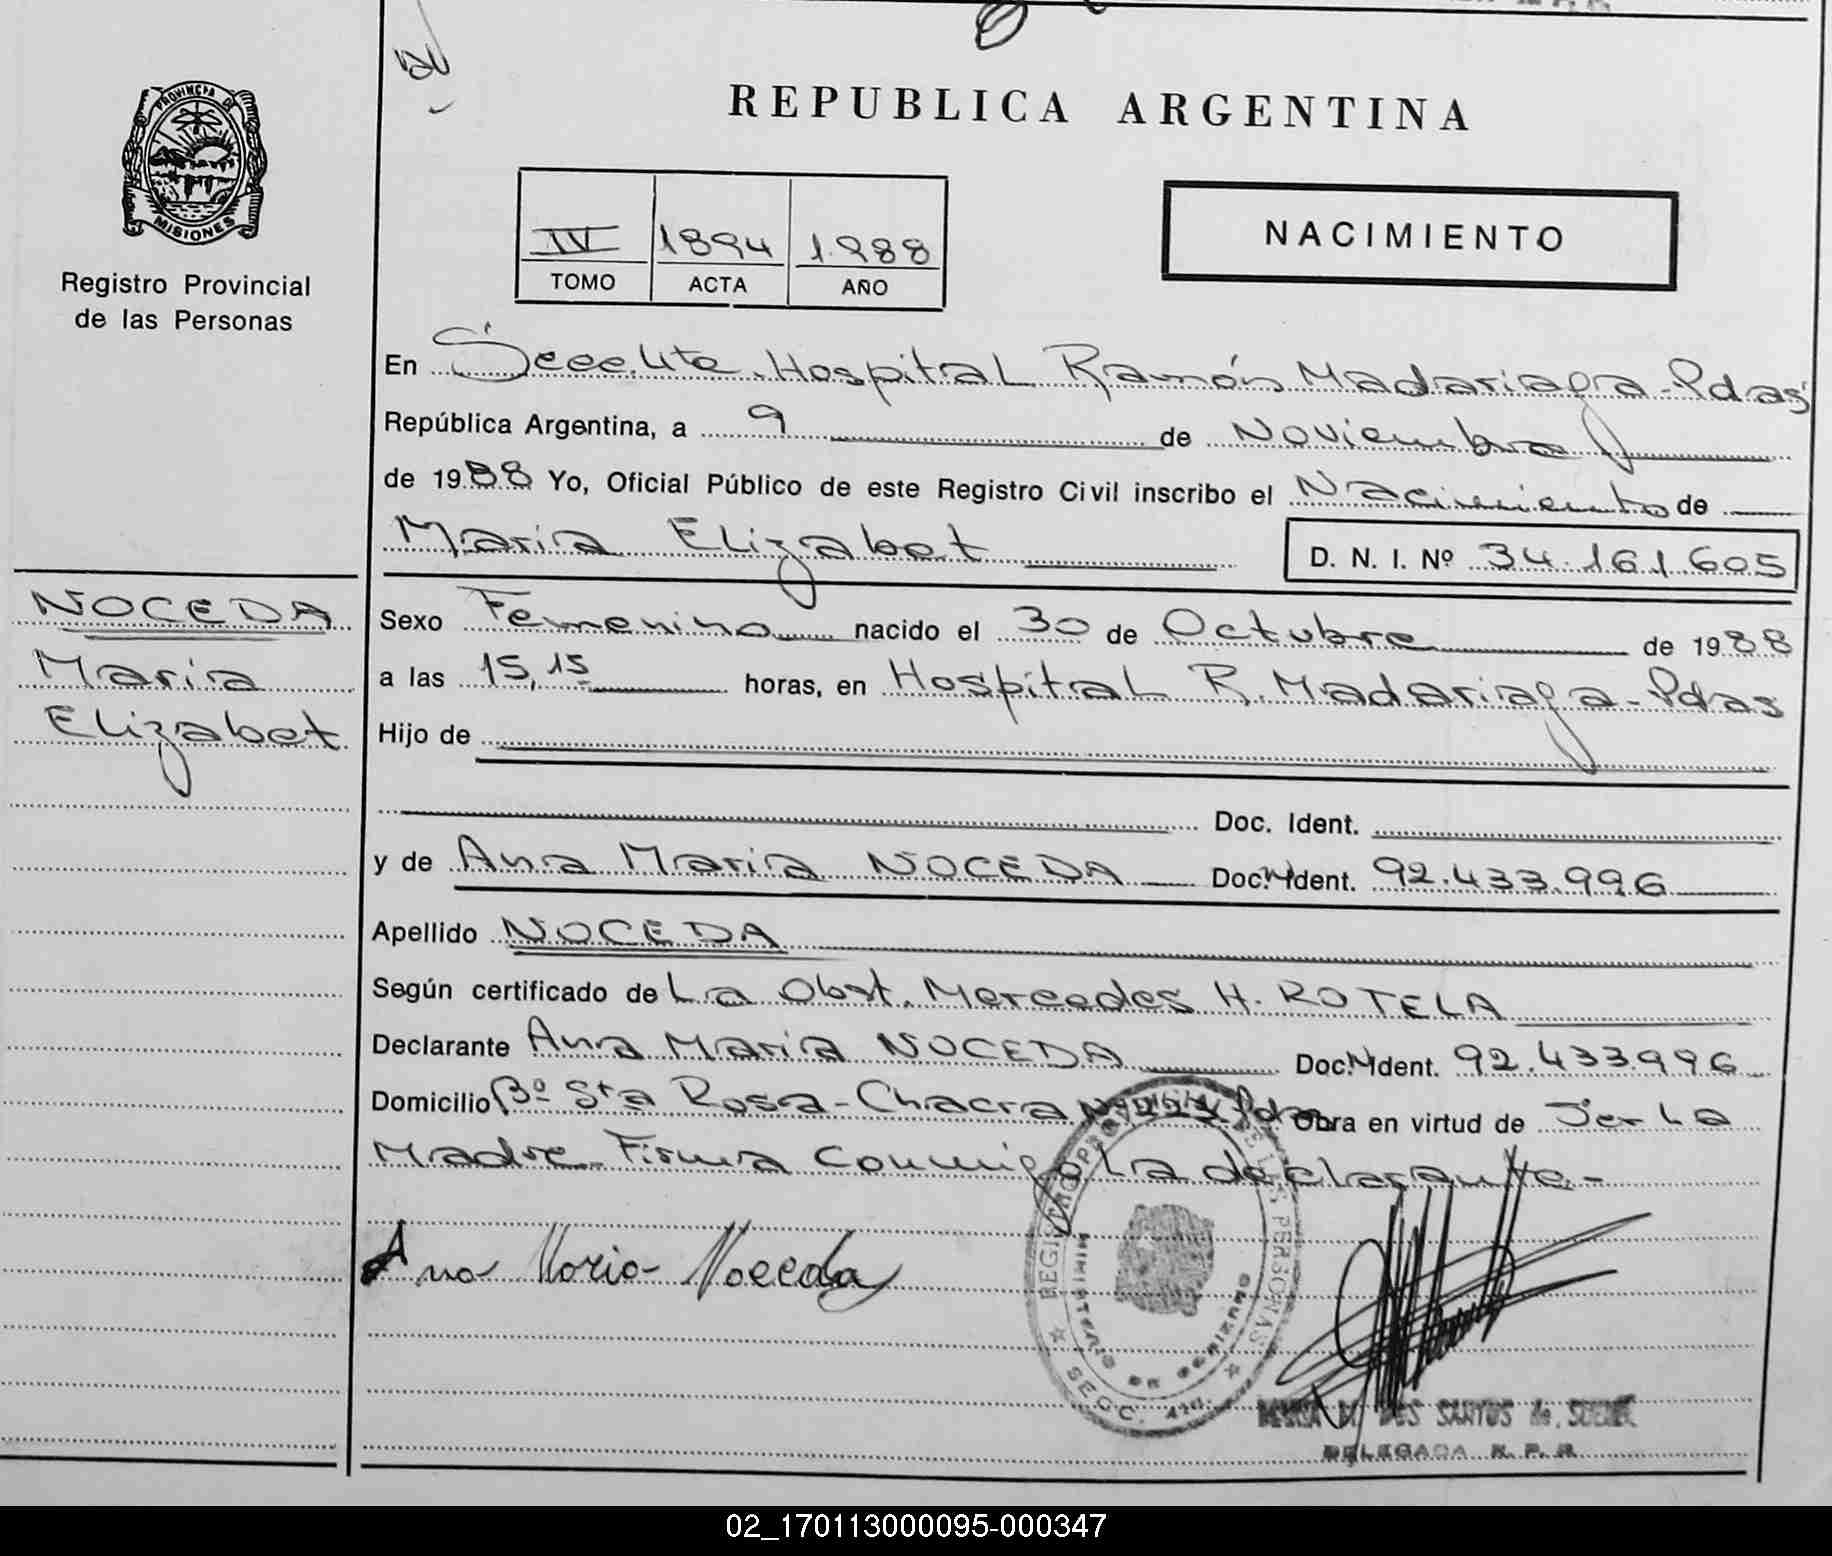 REPUBLICA ARGENTINA
PROVINCIA DE
MISIONES
Registro Provincial
de las Personas
IV 1894 1.988
TOMO ACTA AÑO
NACIMIENTO
En Secc. 4ta. Hospital Ramón Madariaga - Pdas
República Argentina, a 9 de Noviembre
de 1988 Yo, Oficial Público de este Registro Civil inscribo el Nacimiento de
Maria Elizabet D. N. I. Nº 34.161.605
NOCEDA
Maria
Elizabet
Sexo Femenino nacido el 30 de Octubre de 1988
a las 15,15 horas, en Hospital R. Madariaga - Pdas
Hijo de
Doc. Ident.
y de Ana Maria NOCEDA Doc. Ident. 92.433.996
Apellido NOCEDA
Según certificado de La Obst. Mercedes H. ROTELA
Declarante Ana Maria NOCEDA Doc. Ident. 92.433.996
Domicilio Bº Sta Rosa - Chacra Pdas Obra en virtud de Ser La
Madre - Firma conmigo La declarante -
Ana Maria Noceda
REGISTRO PROV. DE LAS PERSONAS
MINISTERIO DE GOBIERNO
SECC. 4ta.
DOS SANTOS de
DELEGADA R. P. P.
02_170113000095-000347